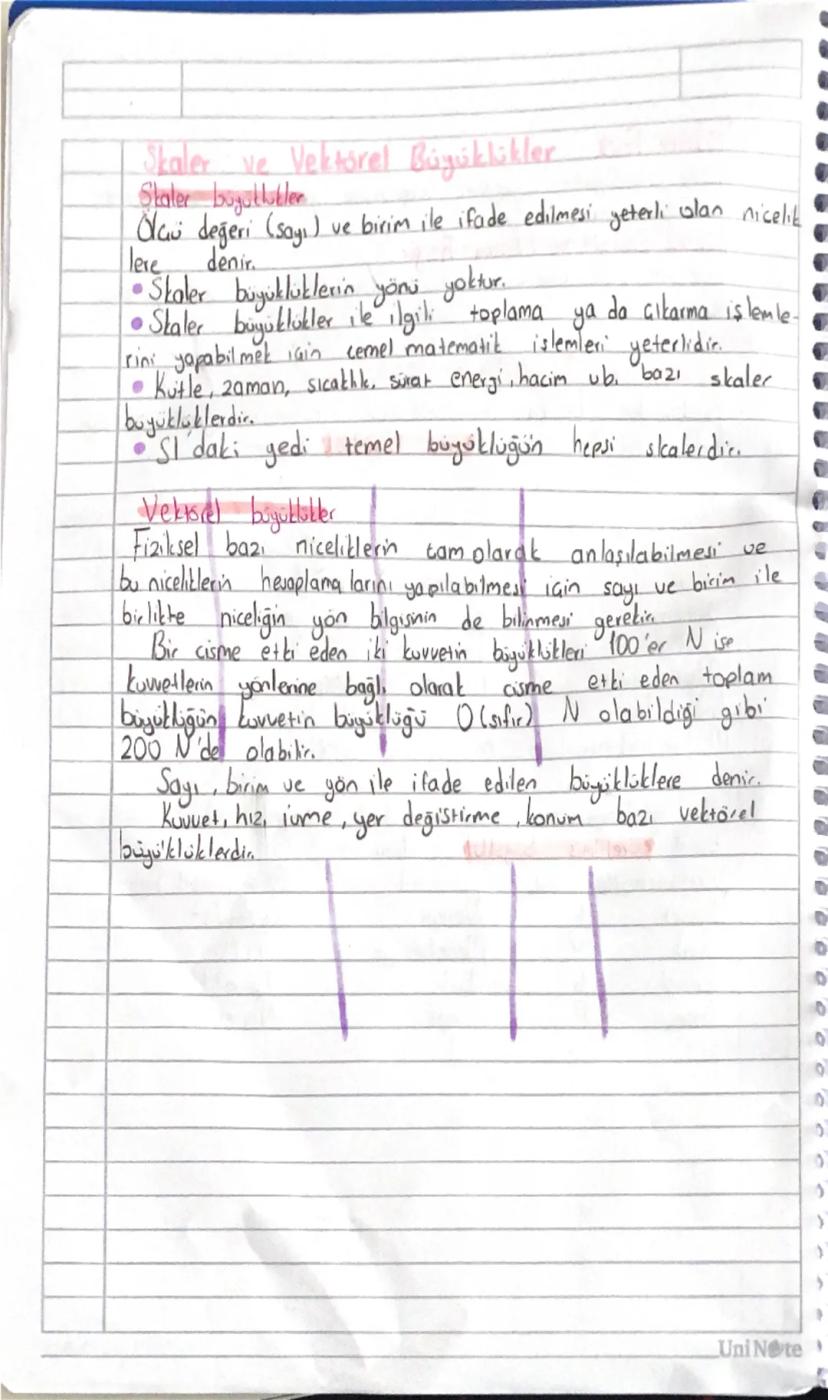 Skaler ve Vektörel Büyüklükler
Skaler büyüklükler
Ölçü değeri (sayı) ve birim ile ifade edilmesi yeterli olan nicelik
lere denir.
• Skaler büyüklüklerin yönü yoktur.
• Skaler büyüklükler ile ilgili toplama ya da çıkarma işlemle-
rini yapabilmek için temel matematik işlemleri yeterlidir.
• Kütle, zaman, sıcaklık, sürat energi, hacim vb. bazı skaler
büyüklüklerdir.
• SI'daki yedi temel büyüklüğün hepsi skalerdir.
Vektörel büyüklükler
Fiziksel bazı niceliklerin tam olarak anlaşılabilmesi ve
bu niceliklerin hesaplamalarını yapılabilmesi için sayı ve birim ile
birlikte niceliğin yön bilgisinin de bilinmesi gerekir.
Bir cisme etki eden iki kuvvetin büyüklükleri 100'er N ise
kuvvetlerin yönlerine bağlı olarak cisme etki eden toplam
büyüklüğün kuvvetin büyüklüğü 0 (sıfır) N olabildiği gibi
200 N'de olabilir.
Sayı, birim ve yön ile ifade edilen büyüklüklere denir.
Kuvvet, hız, ivme, yer değiştirme, konum bazı vektörel
büyüklüklerdir.
UniNote